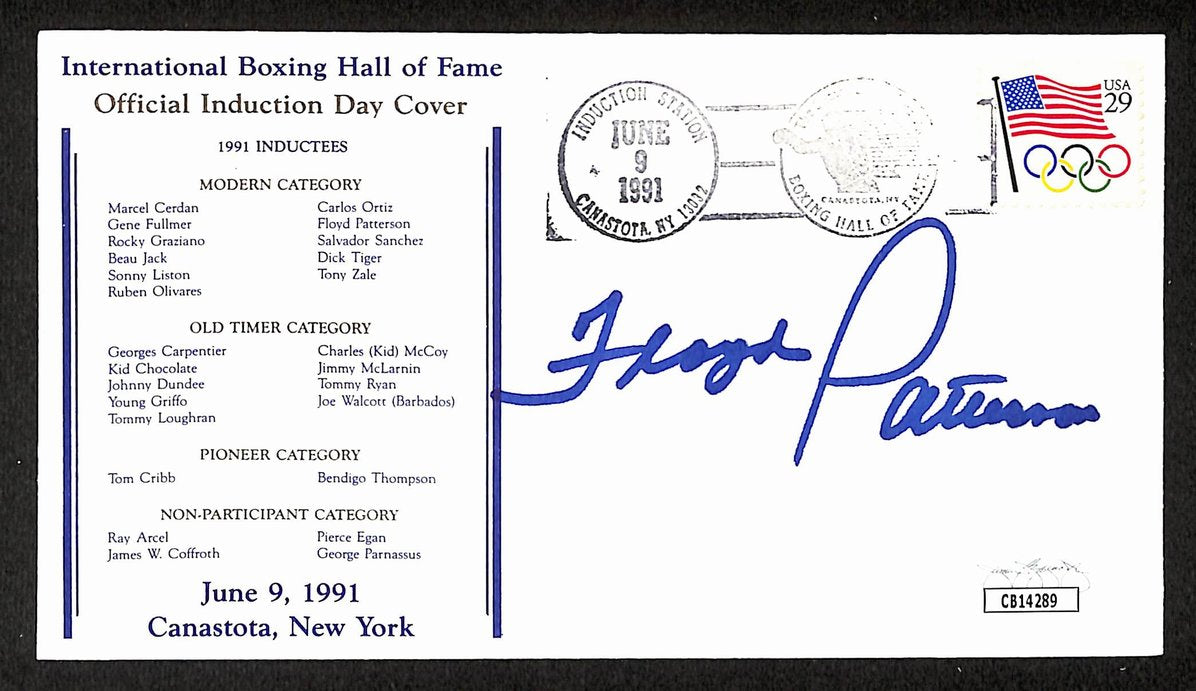 International Boxing Hall of Fame
Official Induction Day Cover
1991 INDUCTEES
MODERN CATEGORY
Marcel Cerdan
Gene Fullmer
Rocky Graziano
Beau Jack
Sonny Liston
Ruben Olivares
Carlos Ortiz
Floyd Patterson
Salvador Sanchez
Dick Tiger
Tony Zale
OLD TIMER CATEGORY
Georges Carpentier
Kid Chocolate
Johnny Dundee
Young Griffo
Tommy Loughran
Charles (Kid) McCoy
Jimmy McLarnin
Tommy Ryan
Joe Walcott (Barbados)
PIONEER CATEGORY
Tom Cribb
Bendigo Thompson
NON-PARTICIPANT CATEGORY
Ray Arcel
James W. Coffroth
Pierce Egan
George Parnassus
June 9, 1991
Canastota, New York
INDUCTION STATION
JUNE
9
1991
CANASTOTA, NY 13032
CANASTOTA, NY
BOXING HALL OF FAME
USA
29
Floyd Patterson
CB14289